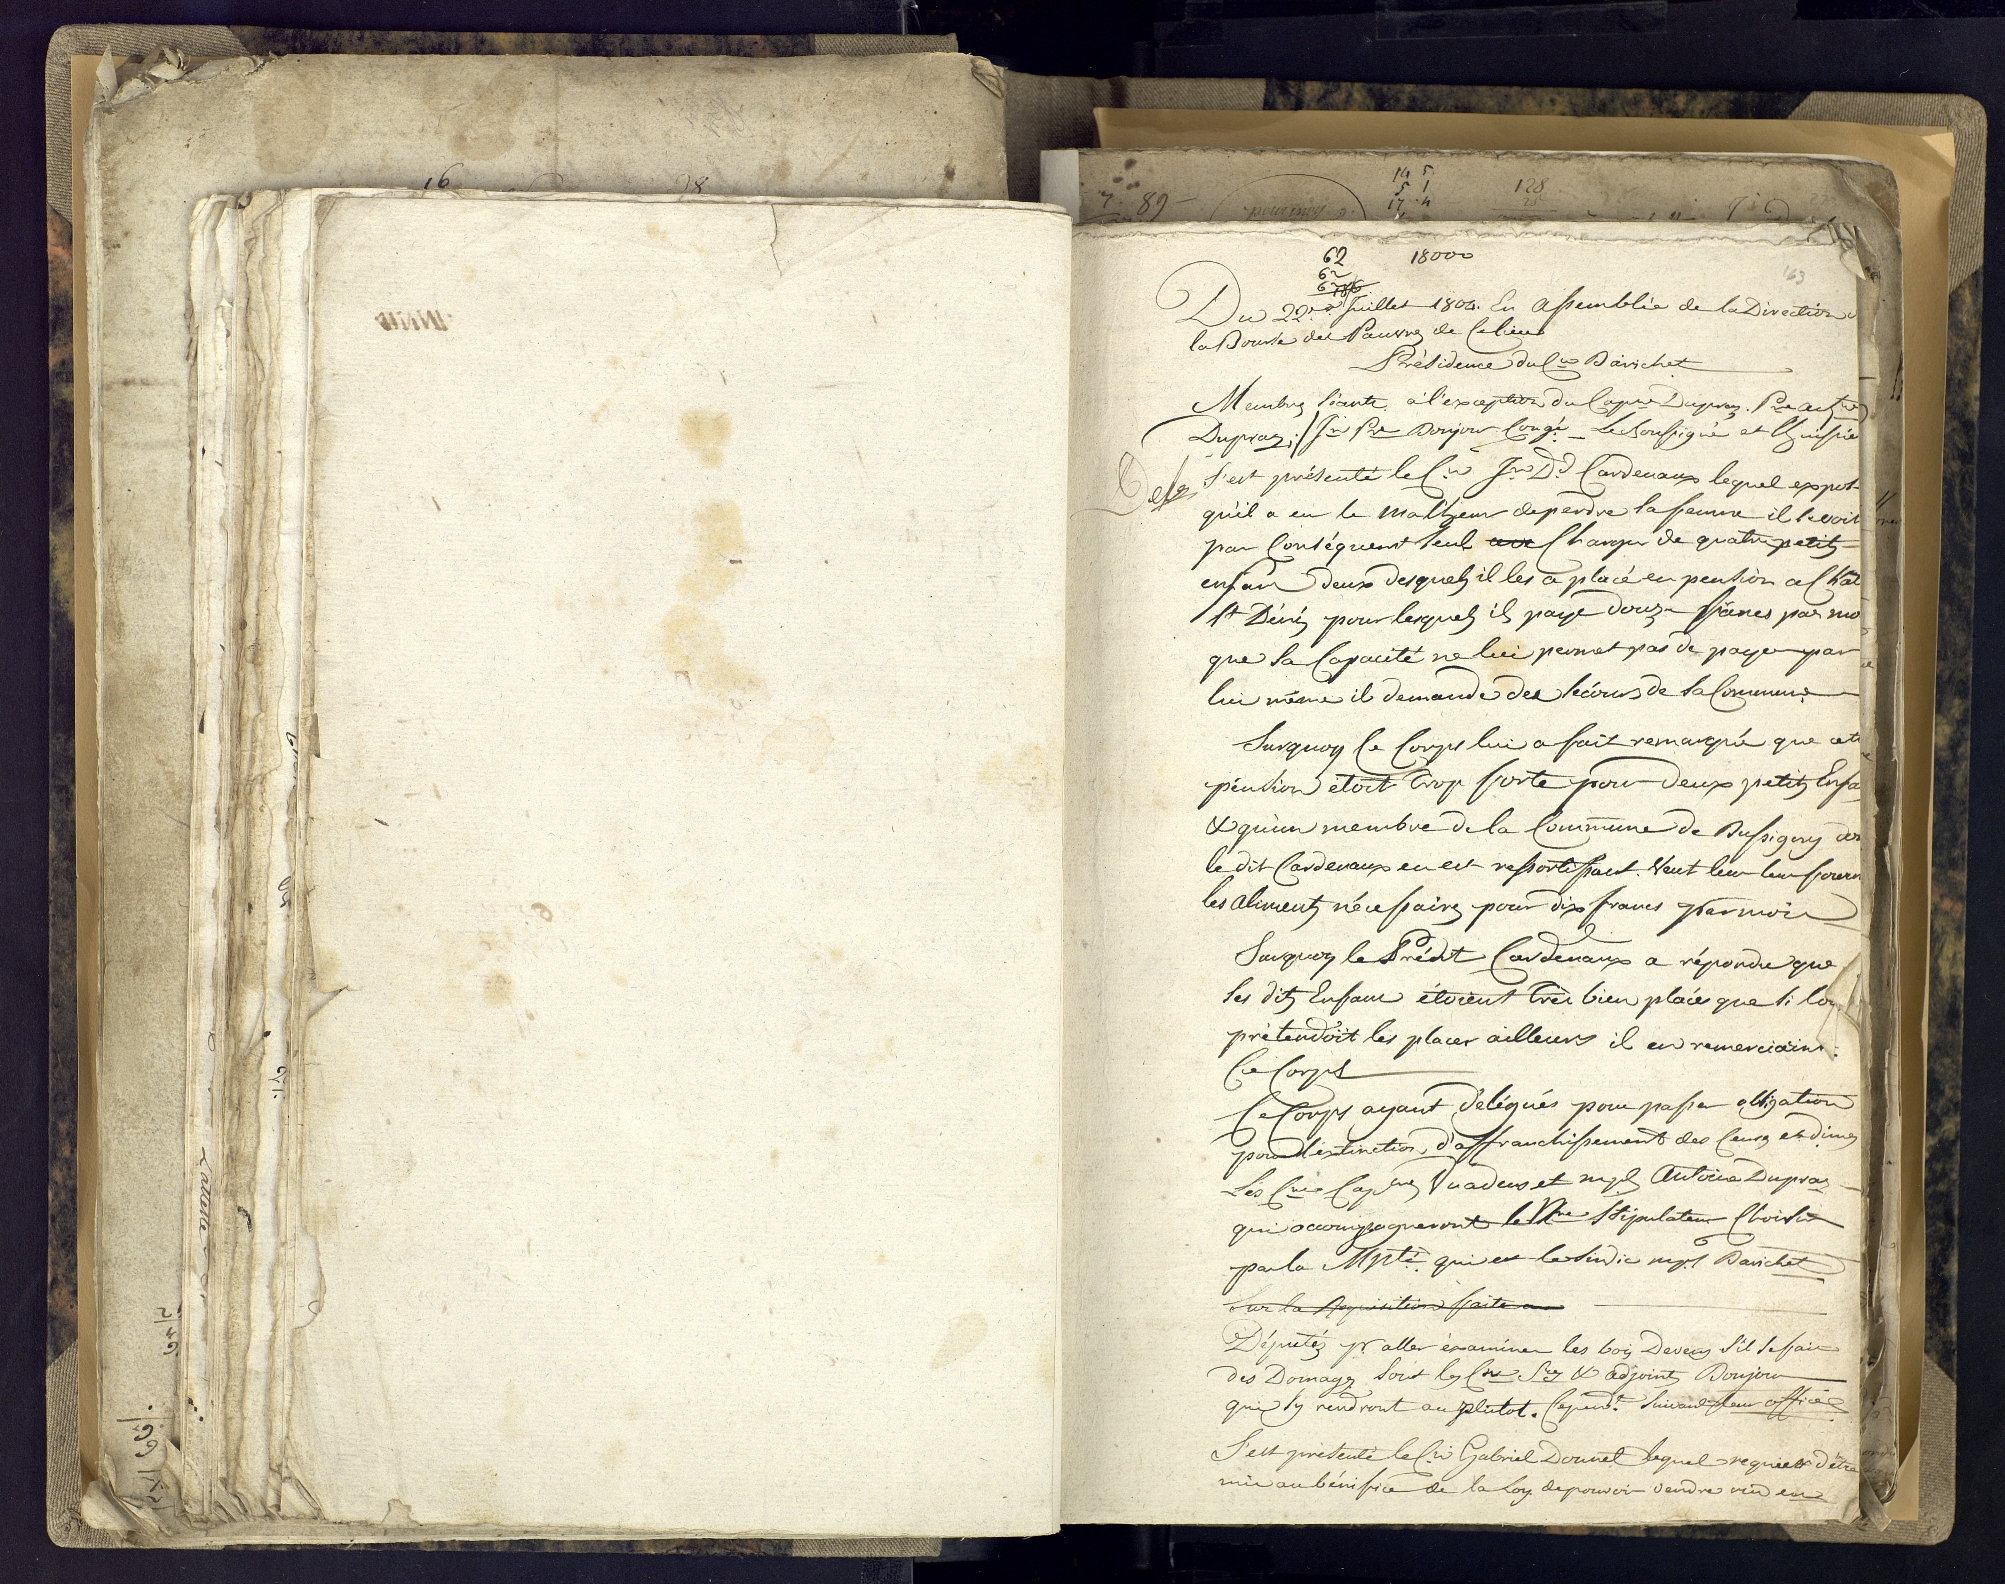 16 28
7 89
14 5
5 1
17 4
128
62 18000
62
163
Du 22e Juillet 1804. En assemblée de la Direction
la Bourse des Pauvres de Ce lieu
Présidence du Cn Barichet
Membres séants à l'exception du Dupraz
Dupraz Jn Bonjour Congé Le Soussigné et
S'est présenté le Cn Jn Dd Cardenaux lequel expose
qu'il a eu le malheur de perdre sa femme il se voit
par Conséquent seul Charger de quatre petits
enfans deux desquels il les a placé en pension a Chat
St Dénis pour lesquels il paye douze francs par mo
que sa Capacité ne lui permet pas de payer par
lui même il demande des sécours de la Commune
Surquoy Ce Corps lui a fait remarqué que cette
pénsion étoit trop forte pour deux petits Enfa
& qu'un membre de la Commune de Bussigny
le dit Cardenaux en est ressortissant veut leur fourn
les aliments nécessaires pour dix francs par mois
Surquoy le Prédit Cardenaux a répondu que
ses dits Enfans étoient très bien placés que si lon
prétendoit les placer ailleurs il en remerciaint
Ce Corps
Ce Corps ayant délégués pour passer obligation
pour l'extinction d'affranchissement des Censes et dimes
Les Cns Vuadens et Antoine Dupraz
qui accompagneront le Nre Stipulateur Choisi
par la Mplté qui est le sindic Barichet
Sur la Requisition faite
Députés pr aller éxaminer les boys Devens s'il se fait
des Domages sont les Cns & adjoint Bonjour
qui s'y rendront au plutot. Suivant leur office
S'est présenté le Cn Gabriel Dounet lequel requiert d'etre
mis au bénéfice de la Loy de pouvoir vendre vin en